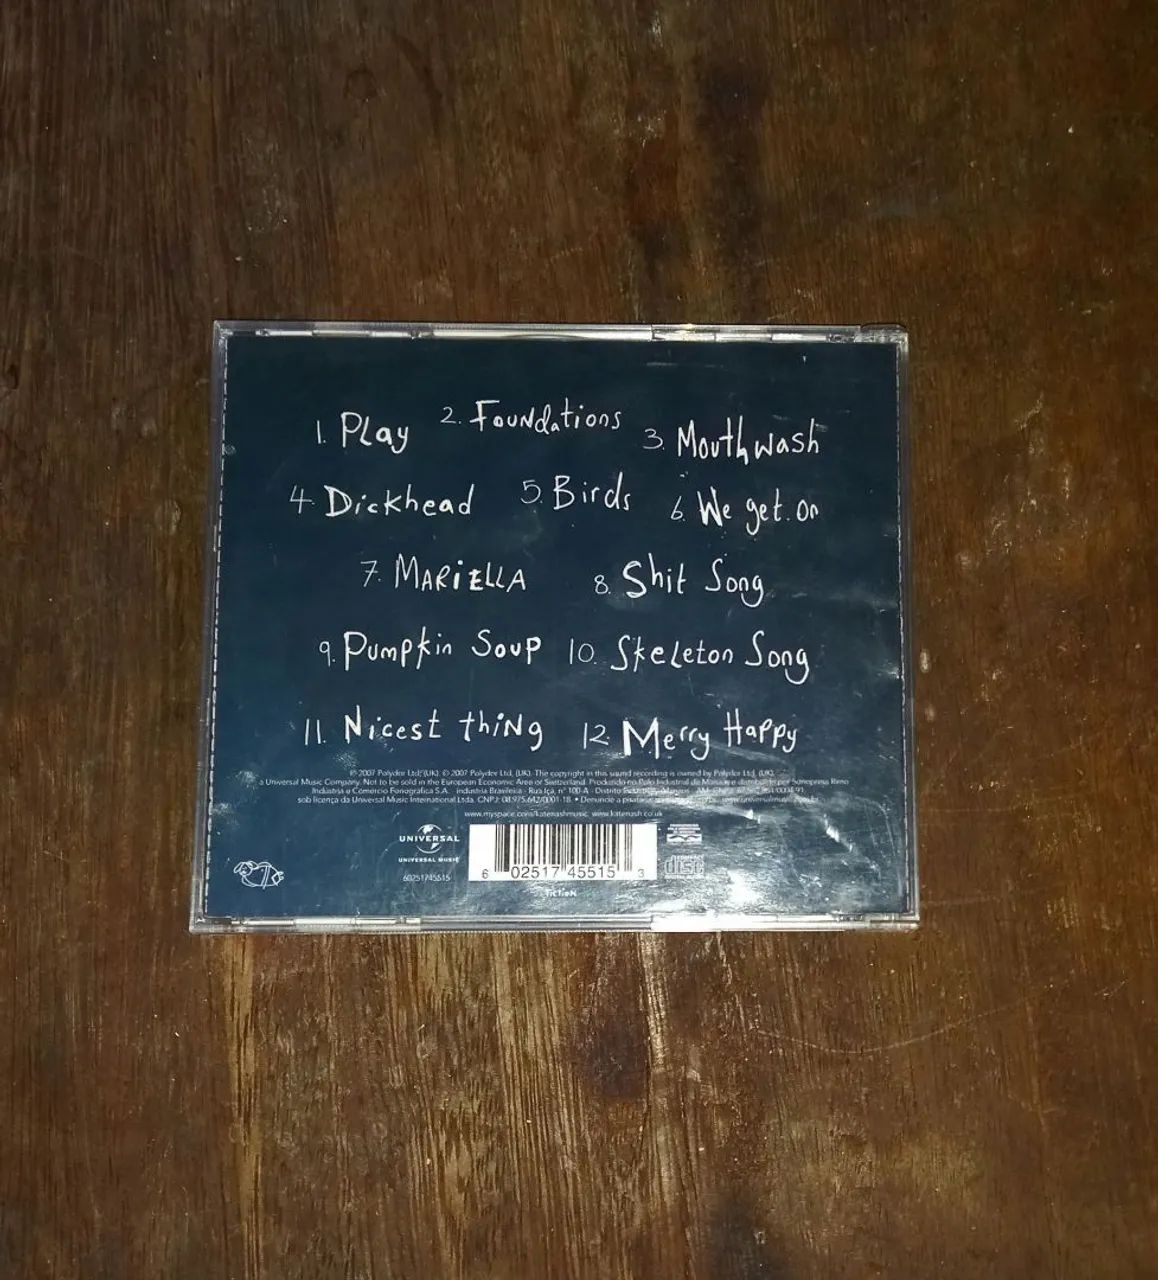 1. Play 2. Foundations 3. Mouthwash
4. Dickhead 5. Birds 6. We get on
7. MARiELLA 8. Shit Song
9. Pumpkin Soup 10. Skeleton Song
11. Nicest thing 12. Merry Happy
℗ 2007 Polydor Ltd. (UK). © 2007 Polydor Ltd. (UK). The copyright in this sound recording is owned by Polydor Ltd. (UK).
a Universal Music Company. Not to be sold in the European Economic Area or Switzerland. Produzido no Polo Industrial de Manaus e distribuído por Sonopress Rimo
Indústria e Comércio Fonográfica S.A. - indústria Brasileira - Rua Içá, nº 100-A - Distrito Industrial - Manaus - AM - CNPJ:
sob licença da Universal Music International Ltda. CNPJ: 08.975.642/0001-18. • Denuncie a
www.myspace.com/katenashmusic www.katenash.co.uk
UNIVERSAL
UNIVERSAL MUSIC
60251745515
6 02517 45515 3
fiction
COMPACT
disc
DIGITAL AUDIO